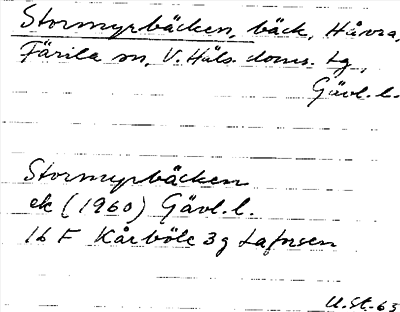 Stormyrbäcken, bäck, Håvra,
Färila sn, V. Häls. doms. tg,
Gävl. l.
Stormyrbäcken
ek (1960) Gävl. l.
16 F Kårböle 3g Laforsen
U.St.-63